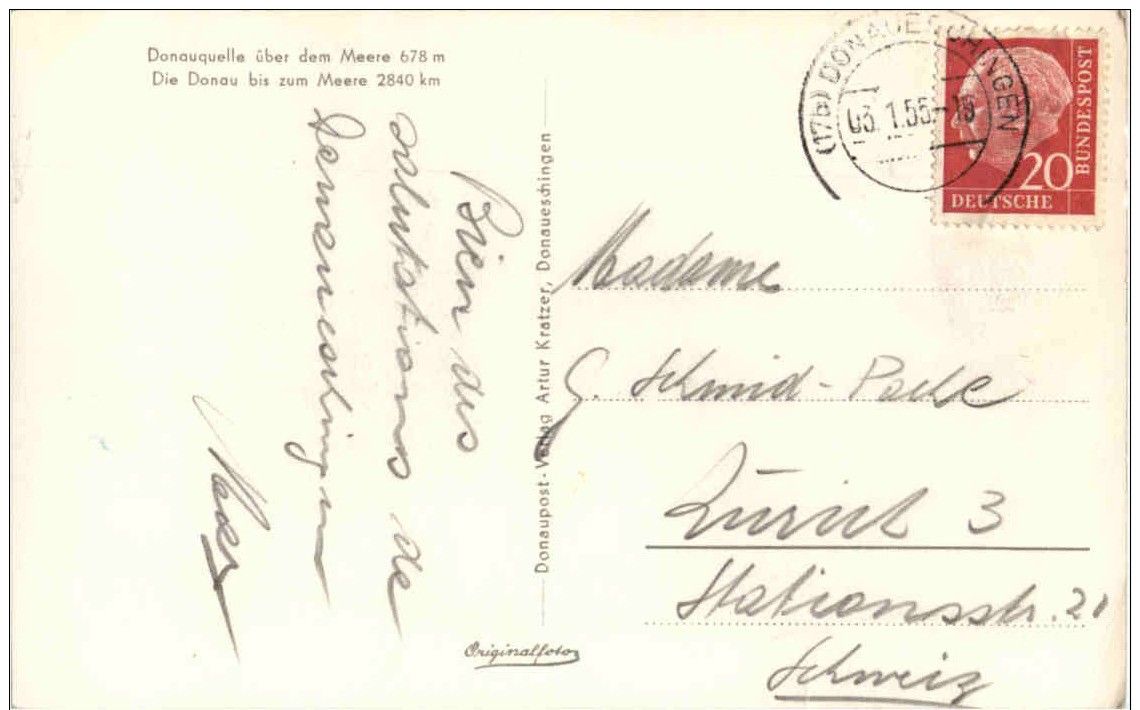 Donauquelle über dem Meere 678 m
Die Donau bis zum Meere 2840 km
Bien des
salutations de
Donaueschingen
Donaupost-Verlag Artur Kratzer, Donaueschingen
Originalfoto
(17b) DONAUESCHINGEN
03. 1.55-18
20
BUNDESPOST
DEUTSCHE
Madame
G. Schmid-
Zürich 3
Stationsstr. 21
Schweiz